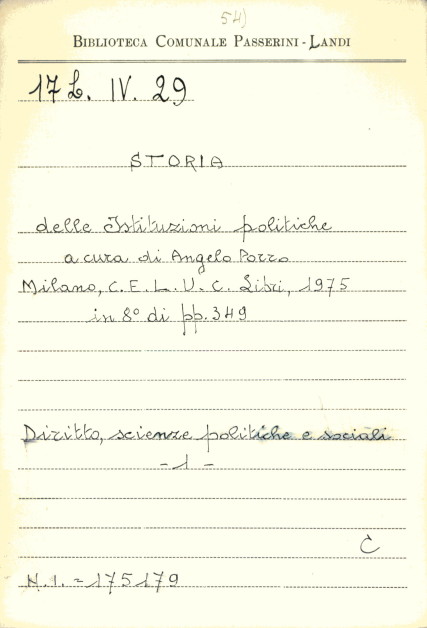 54)
BIBLIOTECA COMUNALE PASSERINI - LANDI
17 L. IV. 29
STORIA
delle Istituzioni politiche
a cura di Angelo Porro
Milano, C. E. L. U. C. Libri, 1975
in 8° di pp. 349
Diritto, scienze politiche e sociali
- 1 -
C
N. 1. = 175179